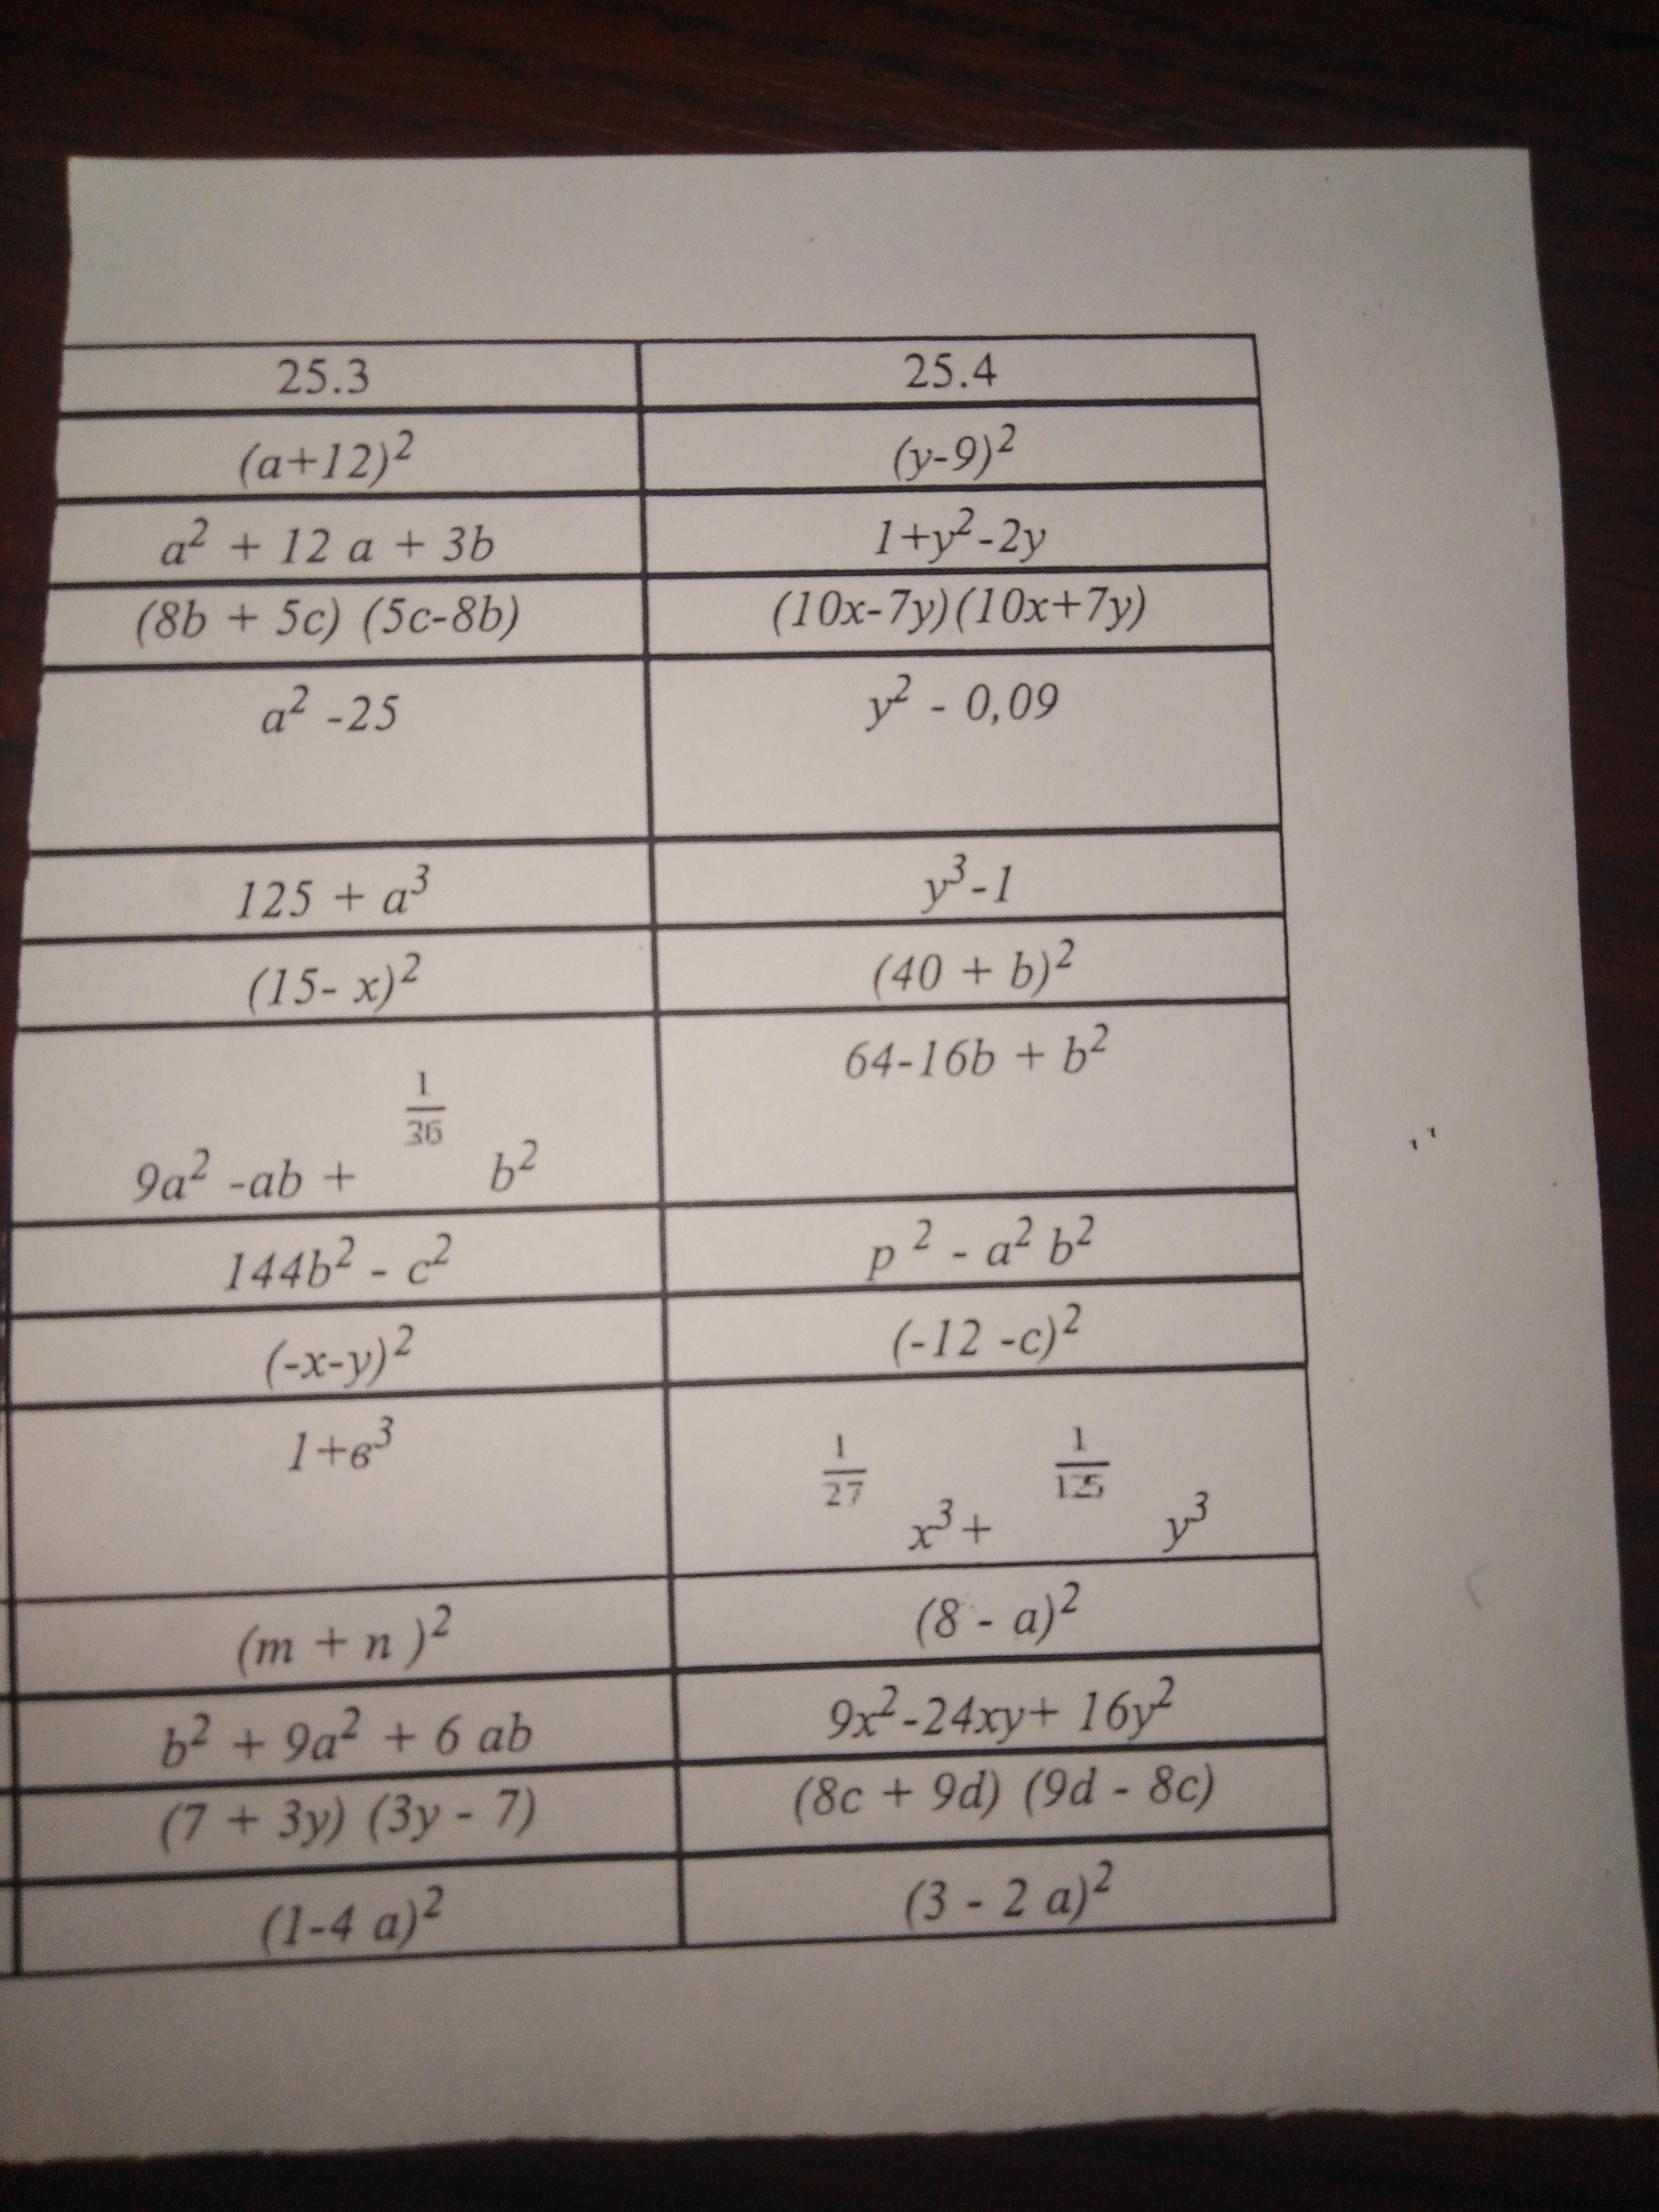 25.3 25.4
(a+12)² (y-9)²
a² + 12 a + 3b 1+y²-2y
(8b + 5c) (5c-8b) (10x-7y)(10x+7y)
a² -25 y² - 0,09
125 + a³ y³-1
(15- x)² (40 + b)²
9a² -ab + 1/36 b² 64-16b + b²
144b² - c² p ² - a² b²
(-x-y)² (-12 -c)²
1+в³ 1/27 x³+ 1/125 y³
(m + n )² (8 - a)²
b² + 9a² + 6 ab 9x²-24xy+ 16y²
(7 + 3y) (3y - 7) (8c + 9d) (9d - 8c)
(1-4 a)² (3 - 2 a)²